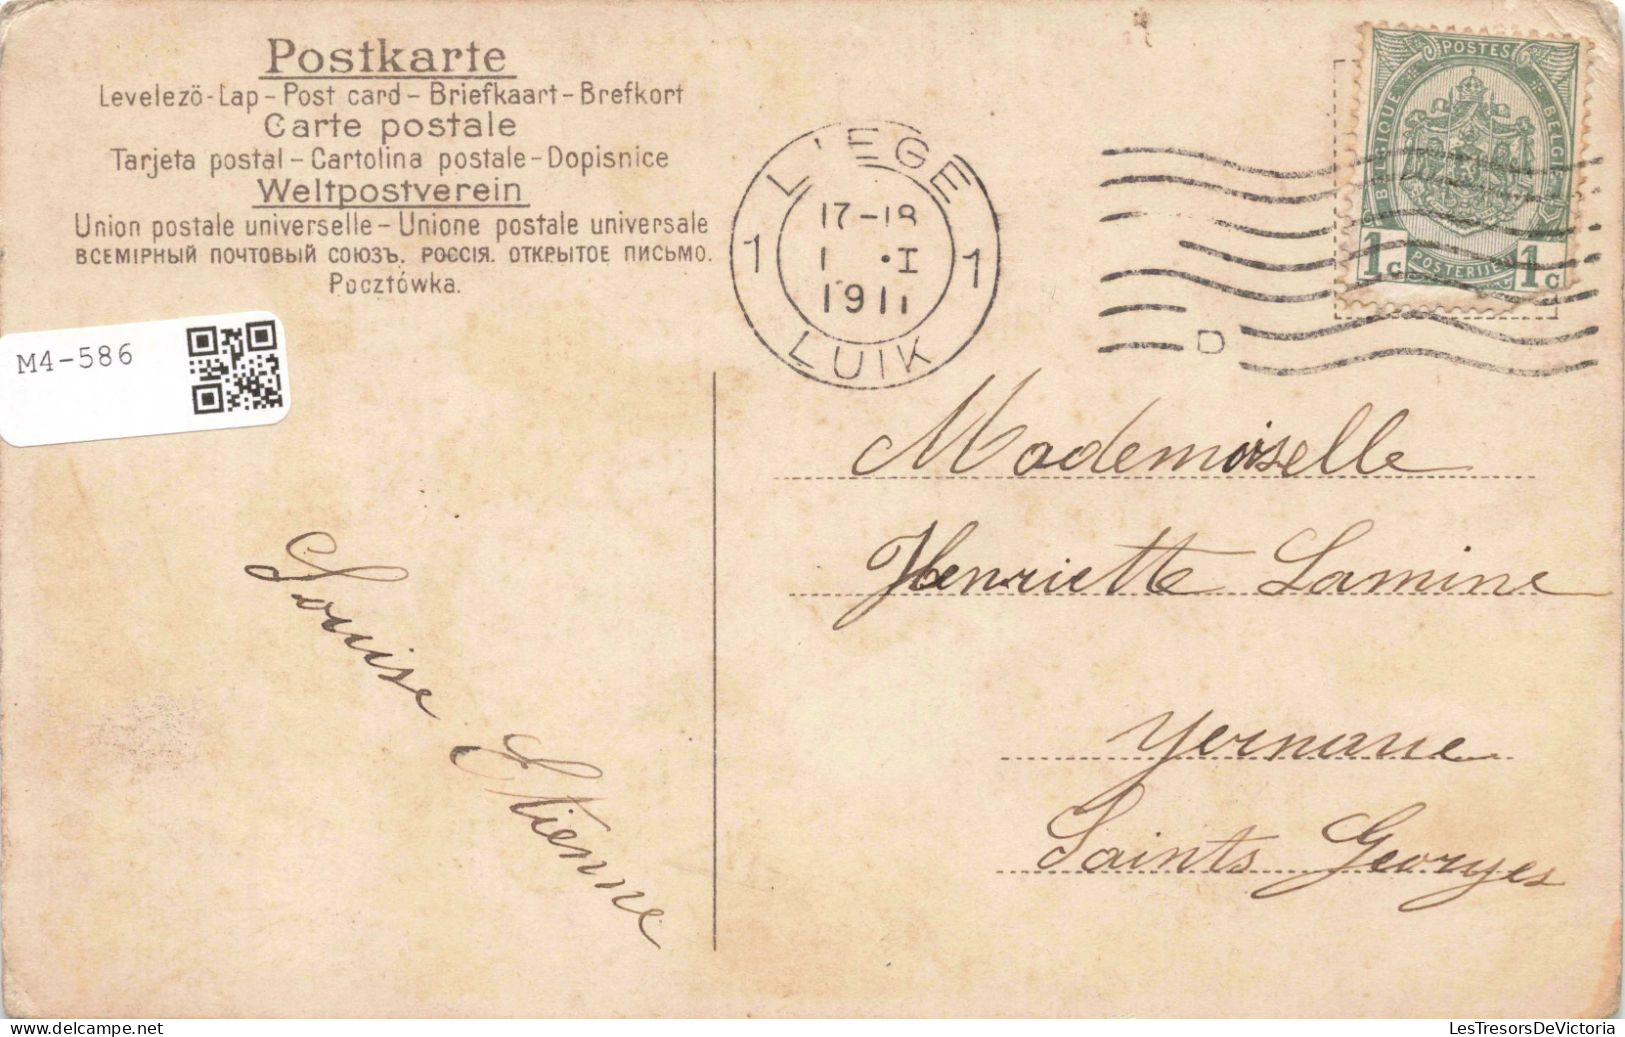 Postkarte
Levelezö-Lap - Post card - Briefkaart - Brefkort
Carte postale
Tarjeta postal - Cartolina postale - Dopisnice
Weltpostverein
Union postale universelle - Unione postale universale
ВСЕМІРНЫЙ ПОЧТОВЫЙ СОЮЗЪ. РОССІЯ. ОТКРЫТОЕ ПИСЬМО.
Pocztówka.
M4-586
LIEGE
17-18
1 1 • I 1
1911
LUIK
D
POSTES
BELGIQUE BELGIE
1c POSTERIJEN 1c
Mademoiselle
Henriette Lamine
Yernawe
Saints Georges
Louise Etienne
LesTresorsDeVictoria